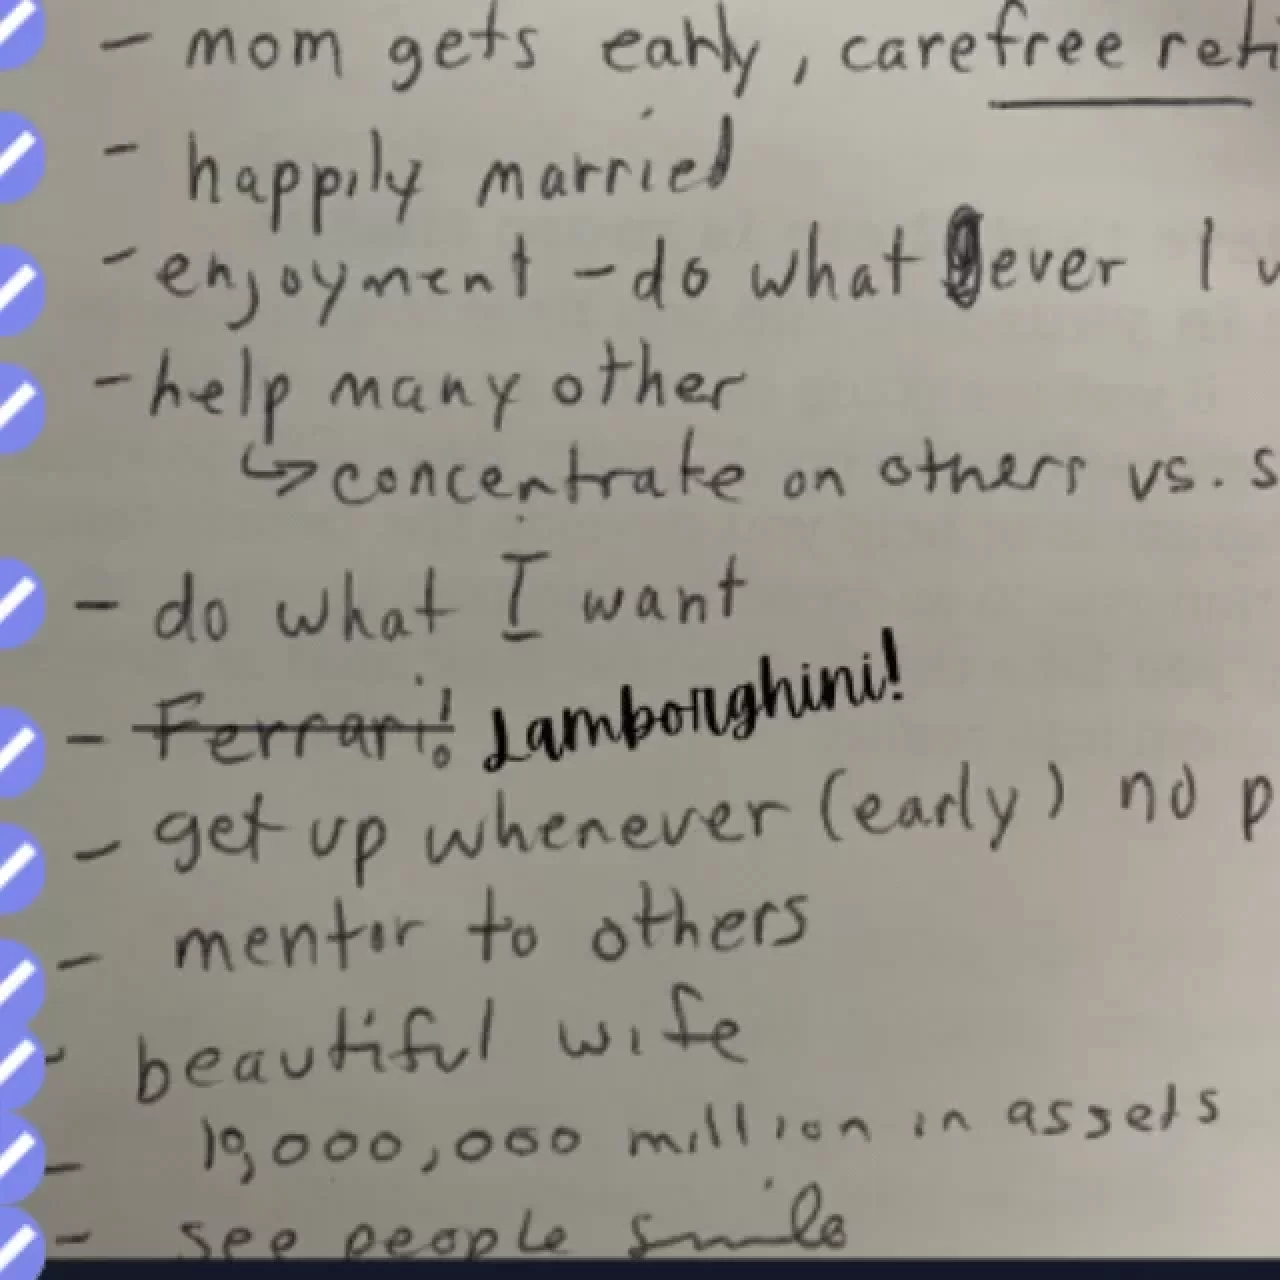 - mom gets early, carefree reti
- happily married
- enjoyment - do what ever I w
- help many other
↳ concentrate on others vs. s
- do what I want
- Ferrari! Lamborghini!
- get up whenever (early) no p
- mentor to others
- beautiful wife
- 10,000,000 million in assets
- see people smile